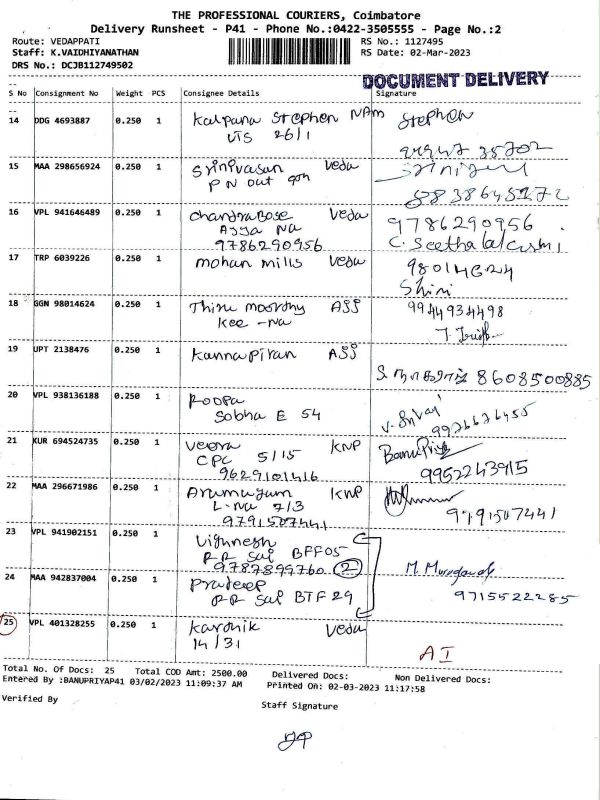 THE PROFESSIONAL COURIERS, Coimbatore
Delivery Runsheet - P41 - Phone No.:0422-3505555 - Page No.:2
Route: VEDAPPATI
RS No.: 1127495
Staff: K.VAIDHIYANATHAN
RS Date: 02-Mar-2023
DRS No.: DCJB112749502
DOCUMENT DELIVERY
S No Consignment No Weight PCS Consignee Details Signature
14 DDG 4693887 0.250 1 Kalpana Stephen NAM Stephen
UTS 26/1
15 MAA 298656924 0.250 1 Srinivasan Veda
PN out
16 VPL 941646489 0.250 1 chandrabose Veda 9786290956
Ayya Na C. Seethalakshmi
9786290956
17 TRP 6039226 0.250 1 mohan mills Veda 98014624
Shini
18 GGN 98014624 0.250 1 Thiru moorthy ASS 9944934498
Kee -Na
19 UPT 2138476 0.250 1 Kannapiran ASS
8608500885
20 VPL 938136188 0.250 1 Roopa
Sobha E 54
21 KUR 694524735 0.250 1 Veera KNP BanuPriya
CPC 5/15 9952243915
9629101416
22 MAA 296671986 0.250 1 Arumugam KNP
L-Na 7/3 9791507441
9791507441
23 VPL 941902151 0.250 1 Vighnesh
RR Sai BFF05
9787899760 2
24 MAA 942837004 0.250 1 Pradeep
RR Sai BTF 29 9715522285
25 VPL 401328255 0.250 1 Karthik Veda
14/31
AI
Total No. Of Docs: 25 Total COD Amt: 2500.00 Delivered Docs: Non Delivered Docs:
Entered By :BANUPRIYAP41 03/02/2023 11:09:37 AM Printed On: 02-03-2023 11:17:58
Verified By
Staff Signature